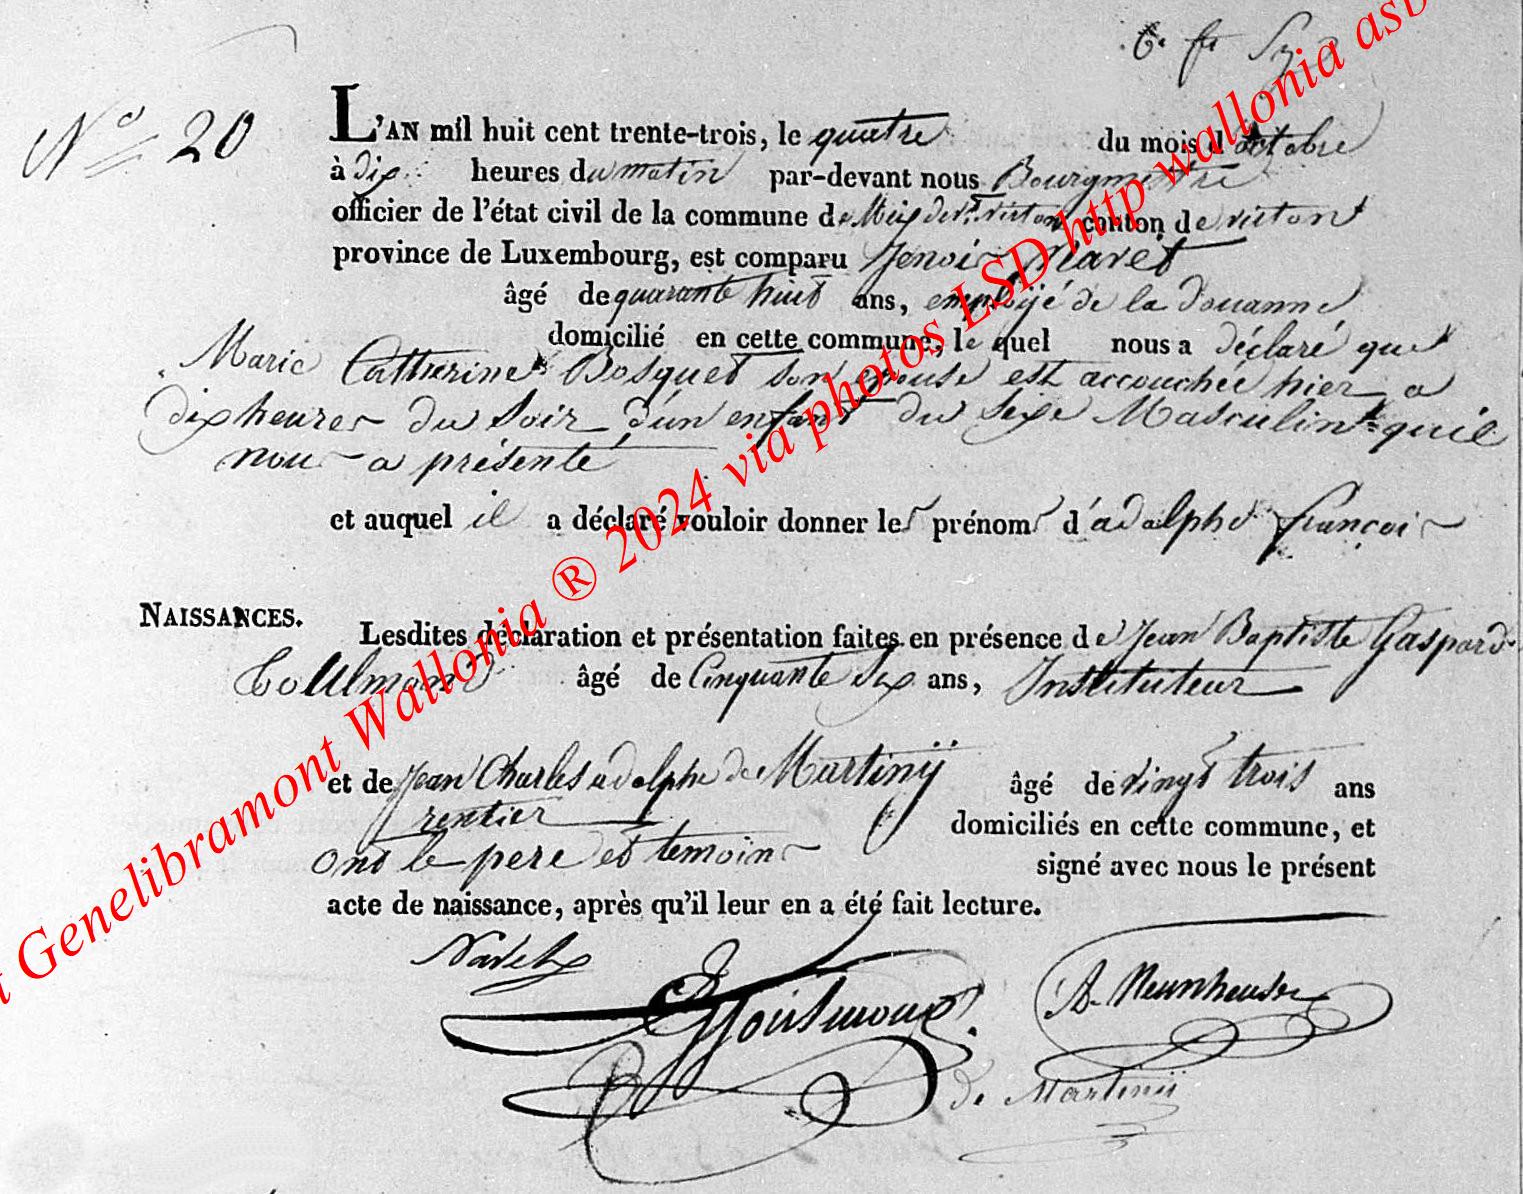 Nº 20
L'AN mil huit cent trente-trois, le quatre du mois d'octobre
à dix heures du matin par-devant nous Bourgmestre
officier de l'état civil de la commune de Meix devt virton canton de virton
province de Luxembourg, est comparu Navet
âgé de quarante huit ans, employé de la douanne
domicilié en cette commune, le quel nous a déclaré que
Marie Catherine Bosquet son épouse est accouchée hier a
dix heures du soir d'un enfant du sexe Masculin qu'il
nous a présenté
et auquel il a déclaré vouloir donner les prénoms d'adolphe françois
NAISSANCES.
Lesdites déclaration et présentation faites en présence de Jean Baptiste Gaspard
Toulmond âgé de Cinquante six ans, Instituteur
et de Jean Charles adolphe de Martinÿ âgé de vingt trois ans
rentier domiciliés en cette commune, et
ont le pere et temoins signé avec nous le présent
acte de naissance, après qu'il leur en a été fait lecture.
Navet
Toulmond
de Martinÿ
Genelibramont Wallonia ® 2024 via photos LSD http wallonia asb